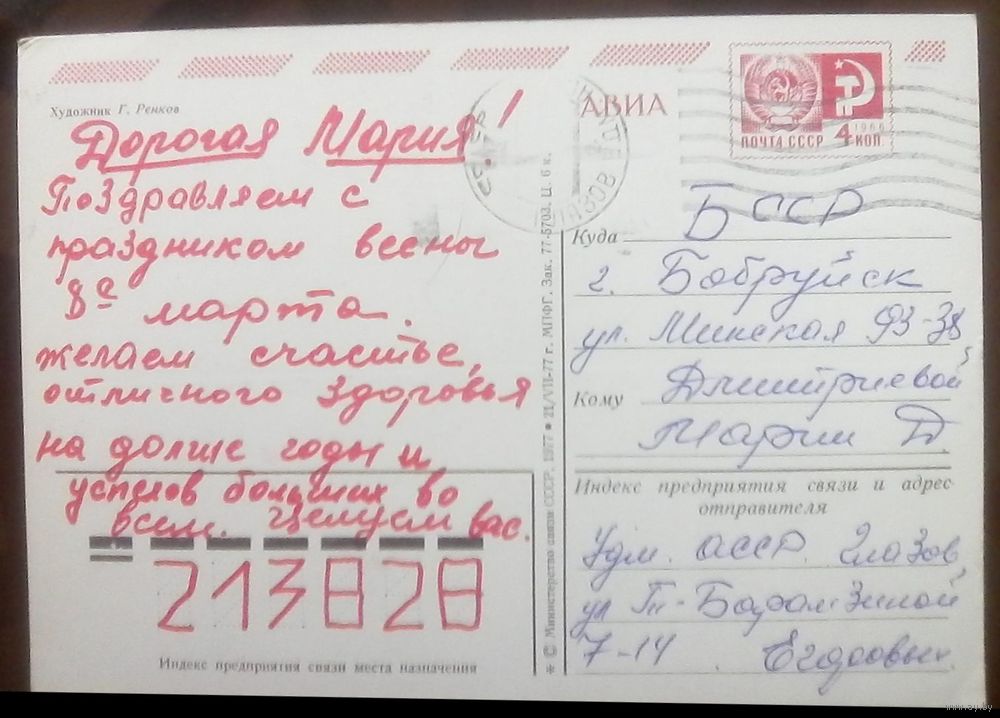 Художник Г. Ренков
АВИА
ПОЧТА СССР
4 КОП.
1966
ГЛАЗОВ
Дорогая Мария!
Поздравляем с
праздником весны
8е марта.
желаем счастье,
отличного здоровья
на долгие годы и
успехов больших во
всем. Целуем вас.
213828
Индекс предприятия связи места назначения
* © Министерство связи СССР. 1977 • 21/VII-77 г. МПФГ. Зак. 77-5703. Ц. 6 к.
Куда БССР
г. Бобруйск
ул. Минская 93-38,
Кому Дмитриевой
Марии Д.
Индекс предприятия связи и адрес
отправителя
Удм. АССР. Глазов,
ул
7-14.